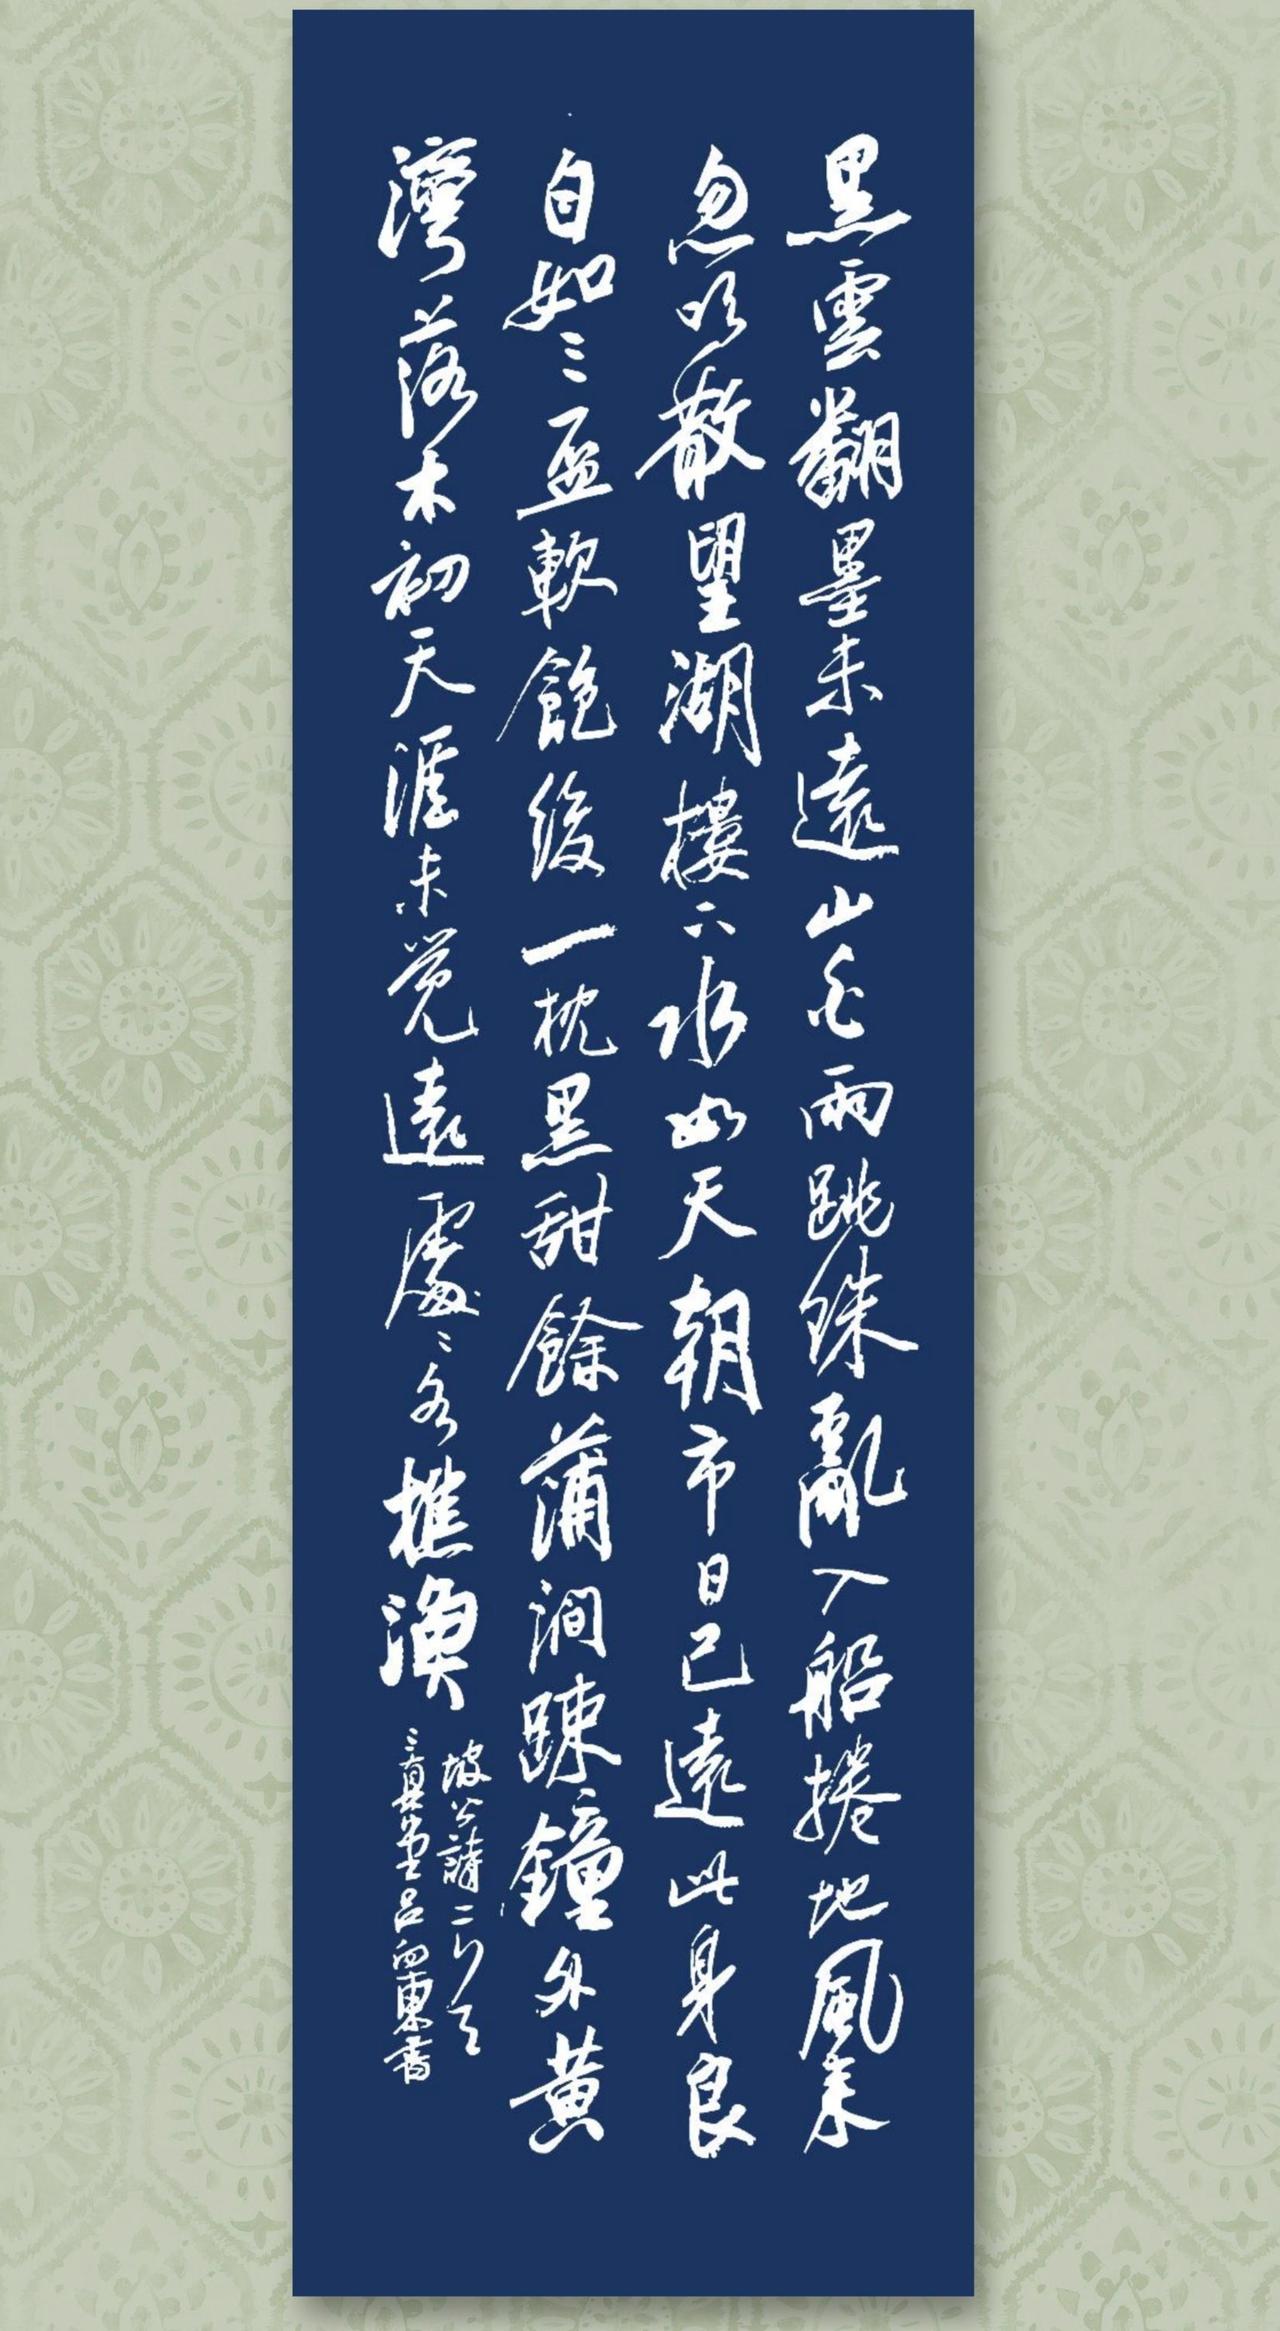 黑雲翻墨未遠山白雨跳珠亂入船捲地風来
忽吹散望湖樓下水如天朝市日已遠此身良
自如三盃軟飽後一枕黑甜餘蒲澗疎鐘外黃
灣落木初天涯未覺遠處々各樵漁
坡公詩二首
三真堂呂向東書